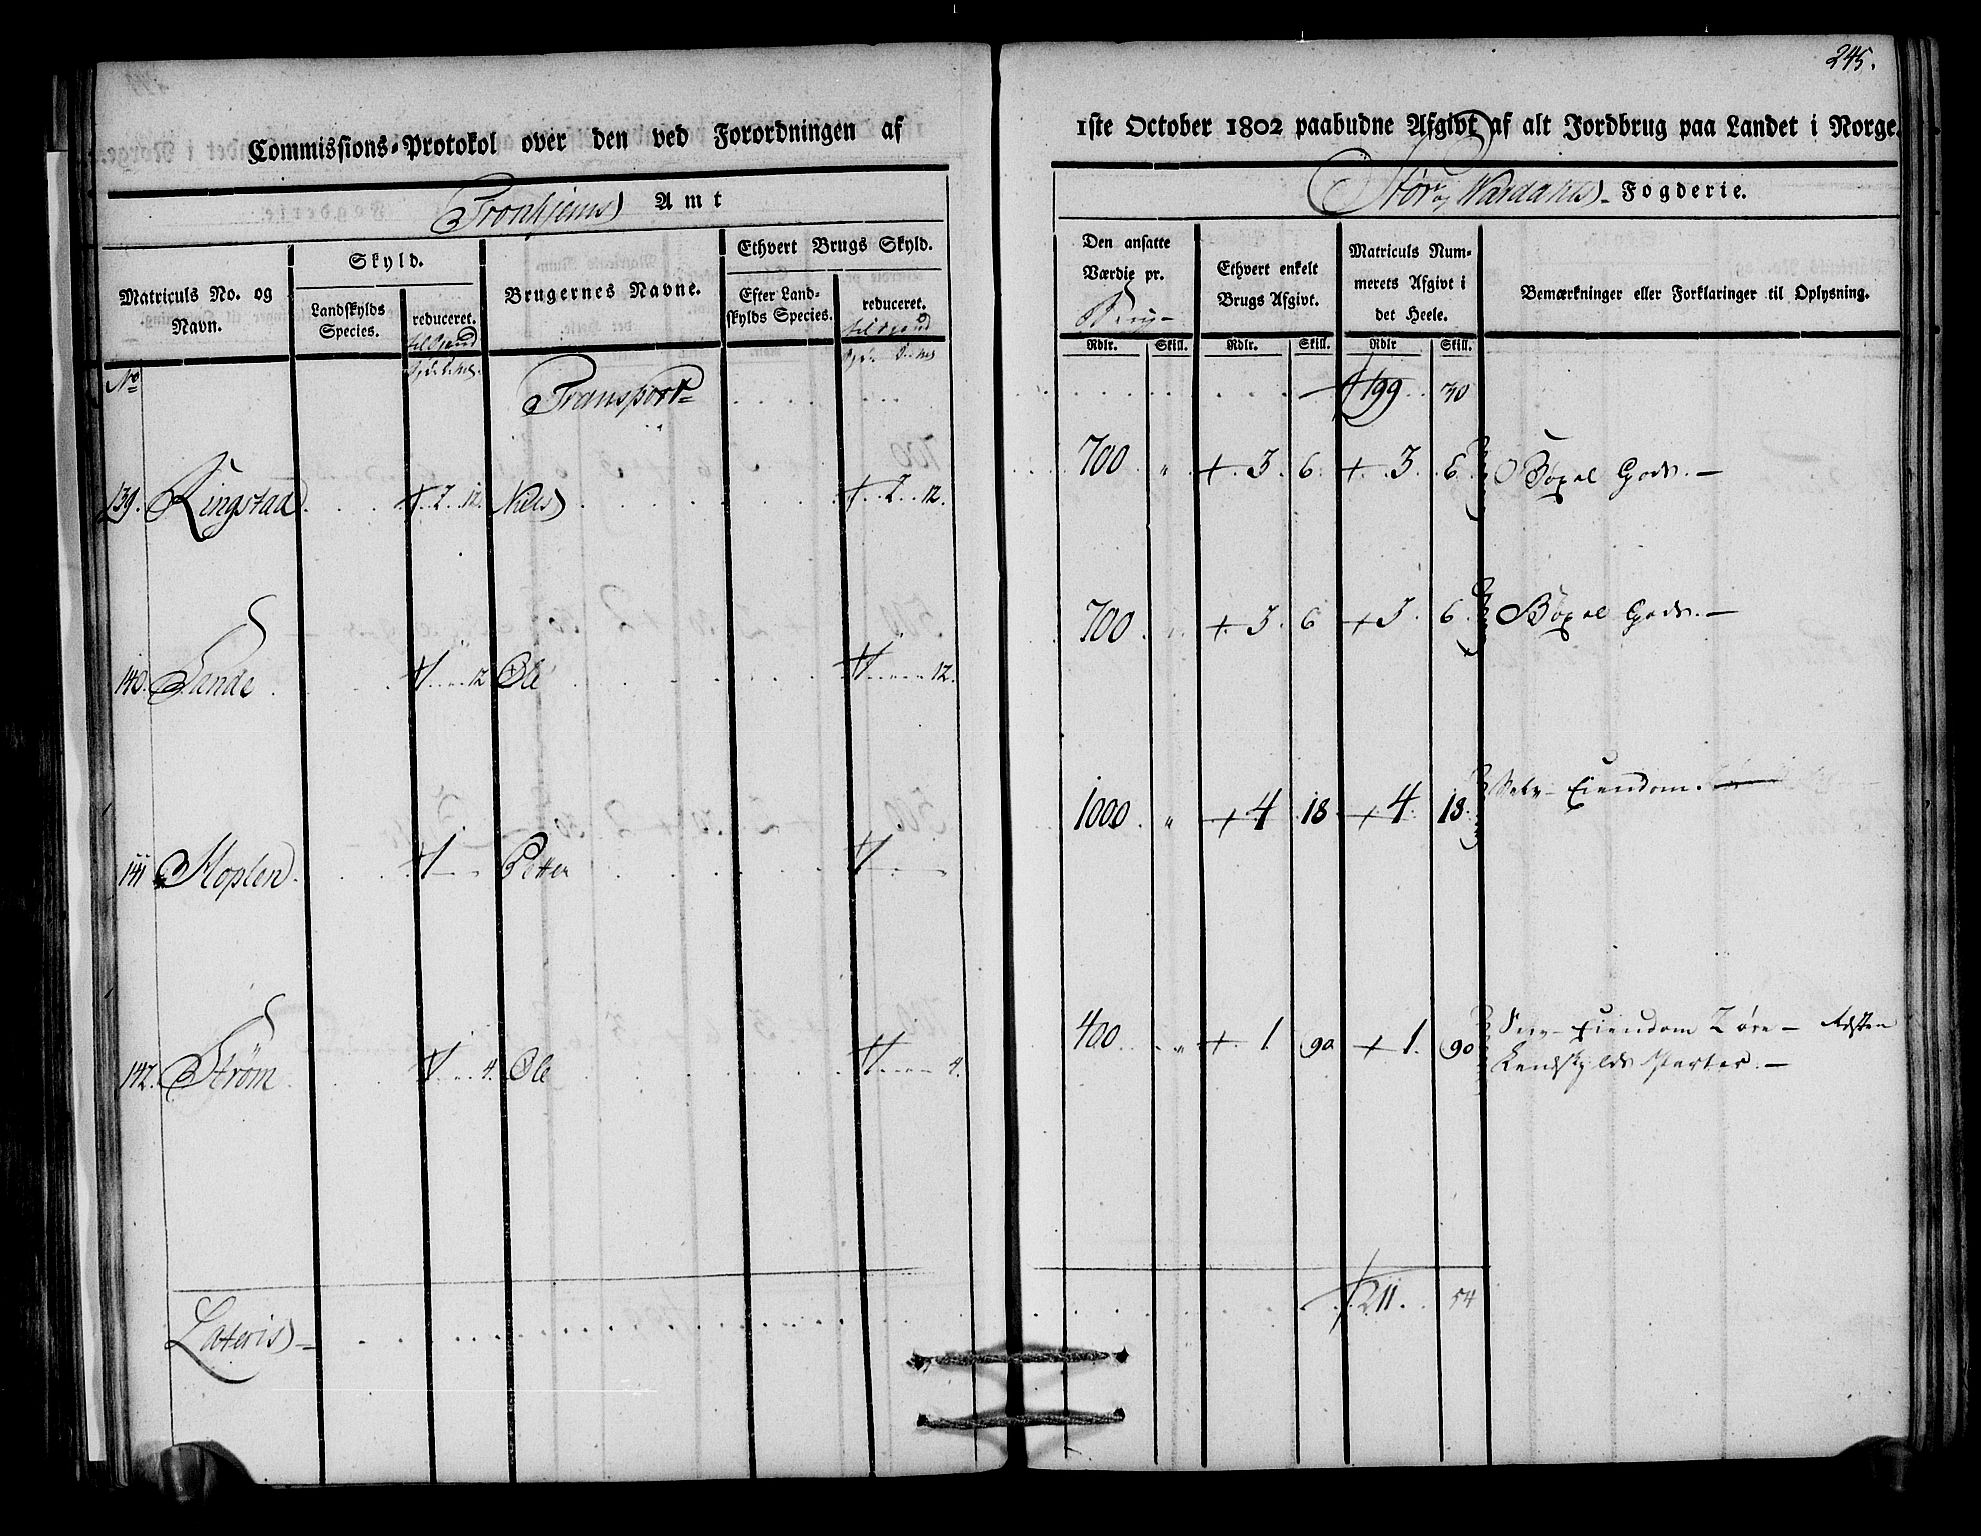 245.
Commissions-Protokol over den ved Forordningen af 1ste October 1802 paabudne Afgivt af alt Jordbrug paa Landet i Norge.
Tronhjems Amt
Stør og Værdahls Fogderie.
Matriculs No. og Navn.
Skyld.
Landskylds Species.
reduceret.
Brugernes Navne.
Ethvert Brugs Skyld.
Efter Landskylds Species.
reduceret.
Den ansatte Værdie pr. Brug
Ethvert enkelt Brugs Afgivt.
Matriculs Nummerets Afgivt i det Heele.
Bemærkninger eller Forklaringer til Oplysning.
Rdlr. Skill. Rdlr. Skill. Rdlr Skill.
No
Transport 199 30
139. Ringstad 2 12. Niels 2 12. 700 " 3 6. 3 6. Gods.
140. Sande 12 Ole 12. 700 3 6 3 6. Gods.
141 Moplen Petter 1000 " 4 18 4 18. Selv Eiendom.
142. Strøm 4. Ole 4. 400 " 1 90 1 90 Selv Eiendom
Landskylds Parter.
Lateris 211 54